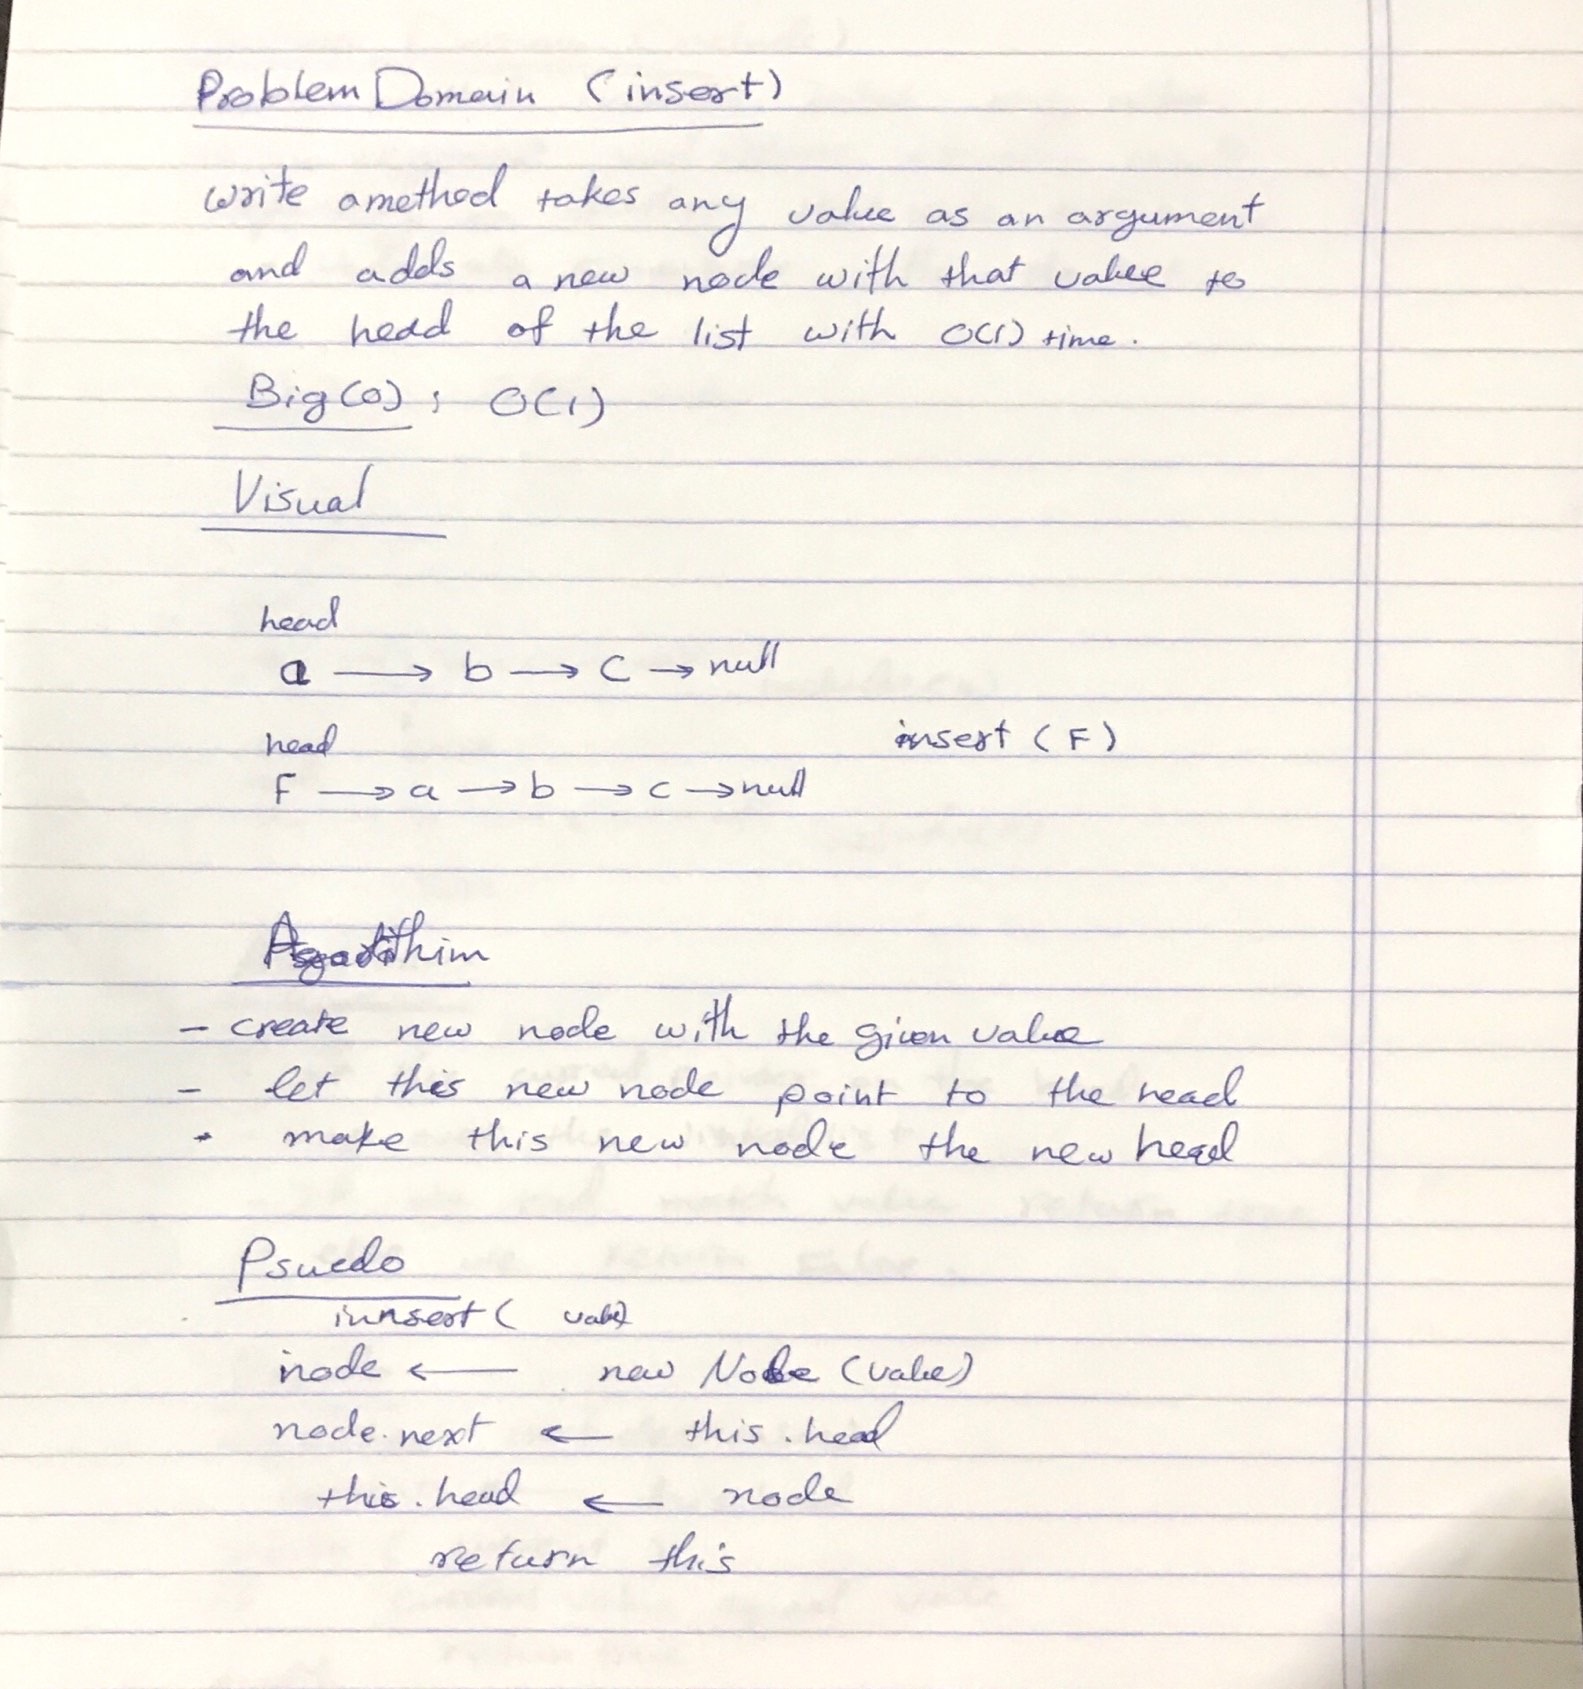 Problem Domain (insert)
write a method takes any value as an argument
and adds a new node with that value to
the head of the list with O(1) time.
Big(O) : O(1)
Visual
head
a → b → c → null
head insert (F)
F → a → b → c → null
Agorithim
- create new node with the given value
- let this new node point to the head
- make this new node the new head
Psuedo
innsert ( value)
node ← new Node (value)
node.next ← this.head
this.head ← node
return this